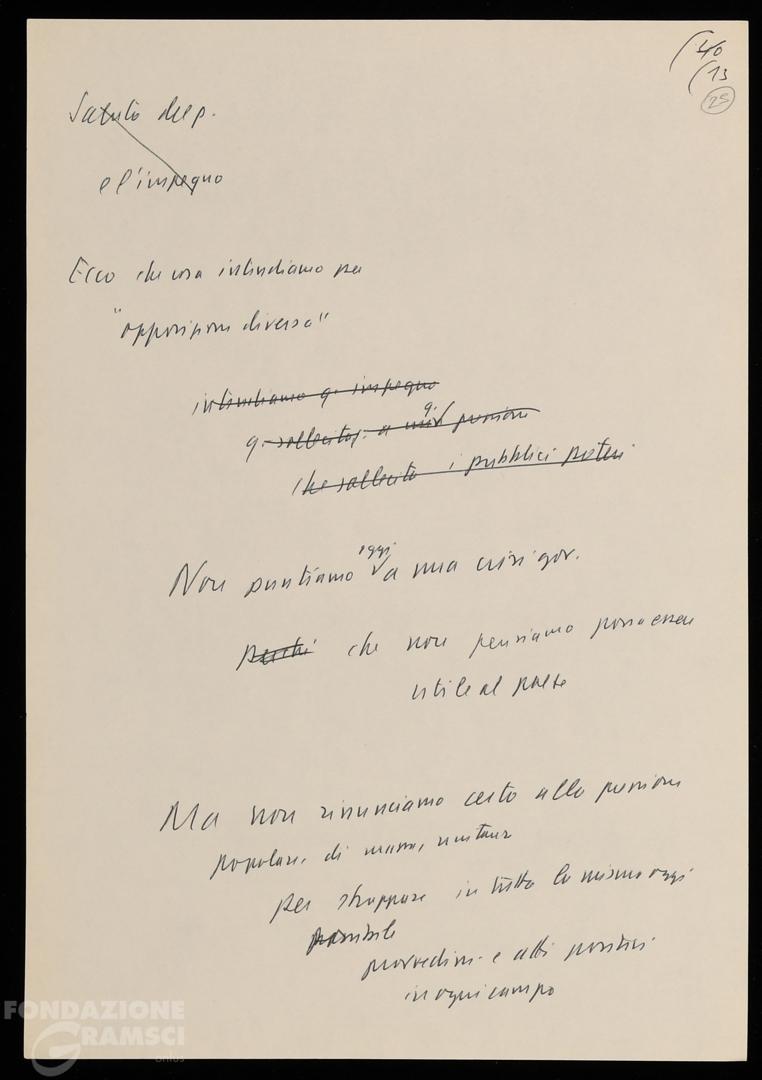 (40
(13
25
Saluto del p.
e l'impegno
Ecco che cosa intendiamo per
"opposizione diversa"
intendiamo q. impegno
q. sollecitaz. a q. pressione
che sollecita i pubblici poteri
Non puntiamo oggi a una crisi gov.
perché che non pensiamo possa essere
utile al paese
Ma non rinunciamo certo alla pressione
popolare, di massa, unitaria
per strappare in tutta la misura oggi
possibile
provvedim. e atti positivi
in ogni campo
FONDAZIONE
GRAMSCI
onlus